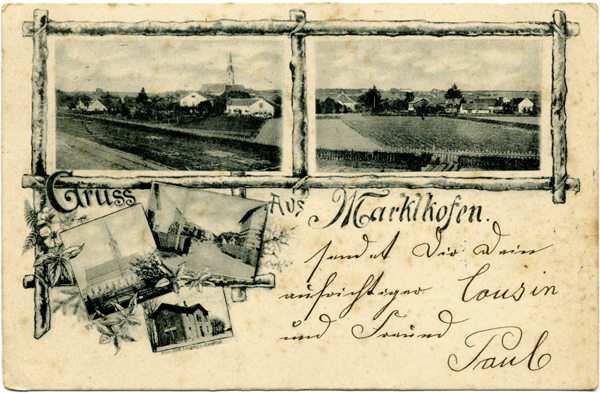 Gruss Aus Marklkofen.
sendet Dir Dein
aufrichtiger Cousin
und Freund
Paul